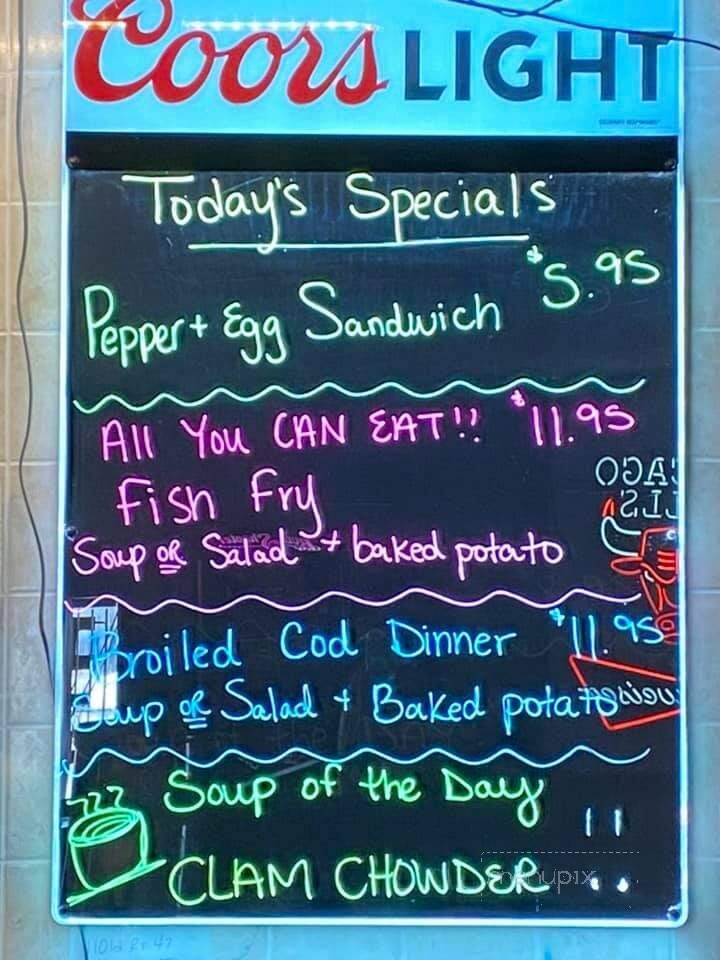 Coors LIGHT
Today's Specials
Pepper + Egg Sandwich $5.95
All You CAN EAT!! $11.95
Fish Fry
Soup OR Salad + baked potato
Broiled Cod Dinner $11.95
Soup OR Salad + Baked potato
Soup of the Day
CLAM CHOWDER !!
menupix